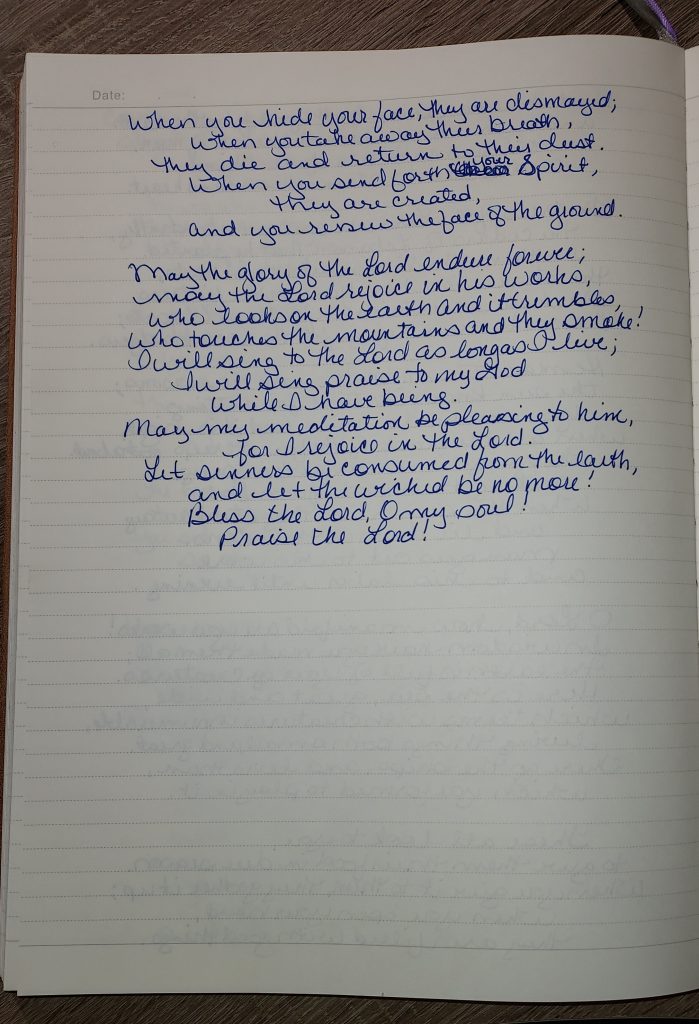 Date:
When you hide your face, they are dismayed;
when you take away their breath,
they die and return to their dust.
When you send forth your Spirit,
they are created,
and you renew the face of the ground.
May the glory of the Lord endure forever;
may the Lord rejoice in his works,
who looks on the earth and it trembles,
who touches the mountains and they smoke!
I will sing to the Lord as long as I live;
I will sing praise to my God
while I have being.
May my meditation be pleasing to him,
for I rejoice in the Lord.
Let sinners be consumed from the earth,
and let the wicked be no more!
Bless the Lord, O my soul!
Praise the Lord!